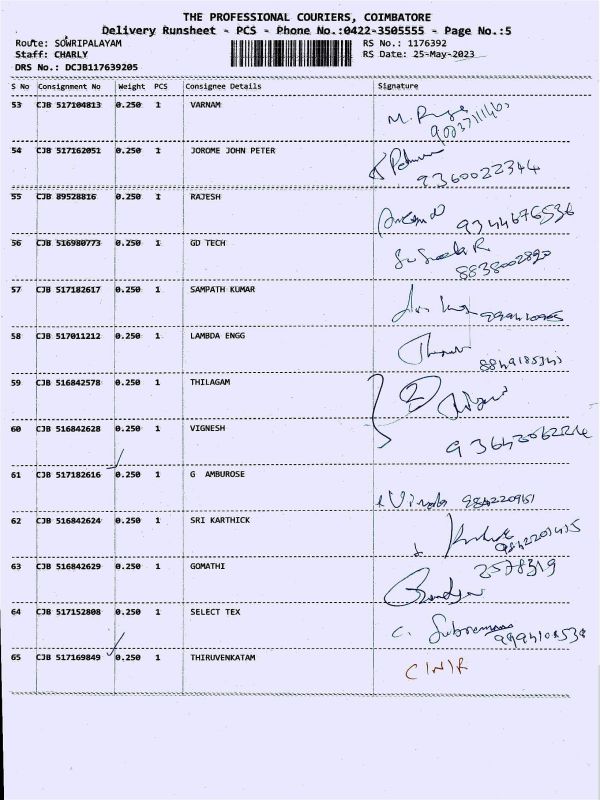 THE PROFESSIONAL COURIERS, COIMBATORE
Delivery Runsheet - PCS - Phone No.:0422-3505555 - Page No.:5
Route: SOWRIPALAYAM RS No.: 1176392
Staff: CHARLY RS Date: 25-May-2023
DRS No.: DCJB117639205
S No Consignment No Weight PCS Consignee Details Signature
53 CJB 517104813 0.250 1 VARNAM
54 CJB 517162051 0.250 1 JOROME JOHN PETER
9360022344
55 CJB 89528816 0.250 1 RAJESH
9344676536
56 CJB 516980773 0.250 1 GD TECH
8838002890
57 CJB 517182617 0.250 1 SAMPATH KUMAR
58 CJB 517011212 0.250 1 LAMBDA ENGG
59 CJB 516842578 0.250 1 THILAGAM
60 CJB 516842628 0.250 1 VIGNESH
61 CJB 517182616 0.250 1 G AMBUROSE
62 CJB 516842624 0.250 1 SRI KARTHICK
63 CJB 516842629 0.250 1 GOMATHI
2578319
64 CJB 517152808 0.250 1 SELECT TEX
65 CJB 517169849 0.250 1 THIRUVENKATAM